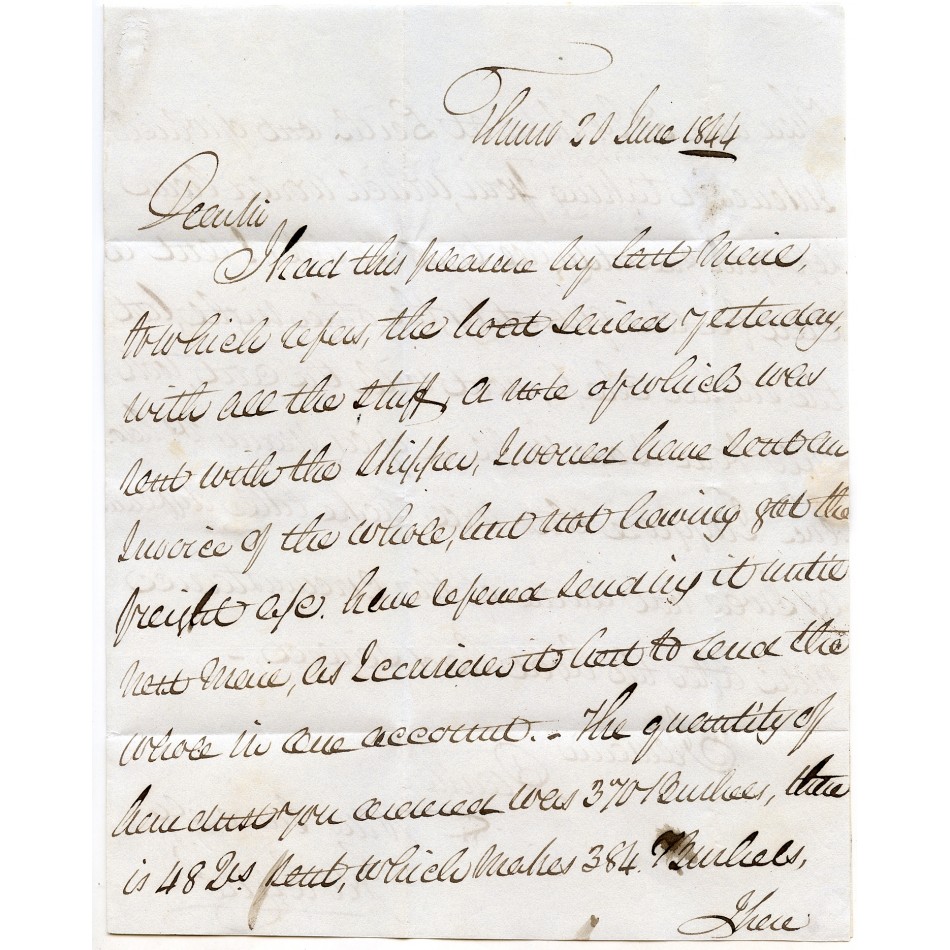 20 June 1844
Dear Sir
I had this pleasure by last Maile,
to which refers, the boat sailed yesterday,
with all the stuff, a note of which was
sent with the Skipper, I would have sent an
Invoice of the whole, but not having got the
freight a/c. have refered sending it untill
next Maile, as I consider it best to send the
whole in one account. - The quantity of
you ordered was 370 Bushels, there
is 48 Qrs sent, which makes 384 Bushels,
There